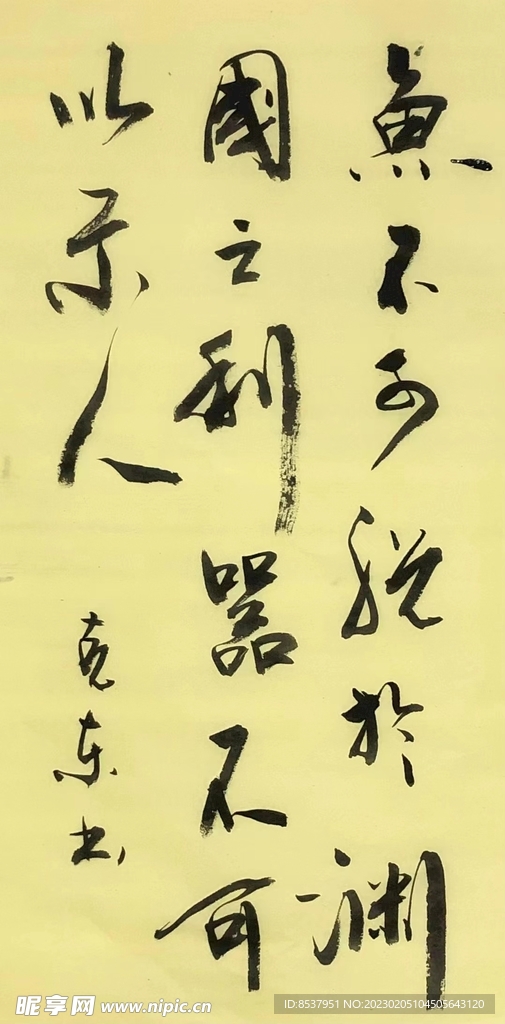 魚不可脱於渊
國之利器不可
以示人
克东书
昵享网 www.nipic.cn
ID:8537951 NO:20230205104505643120